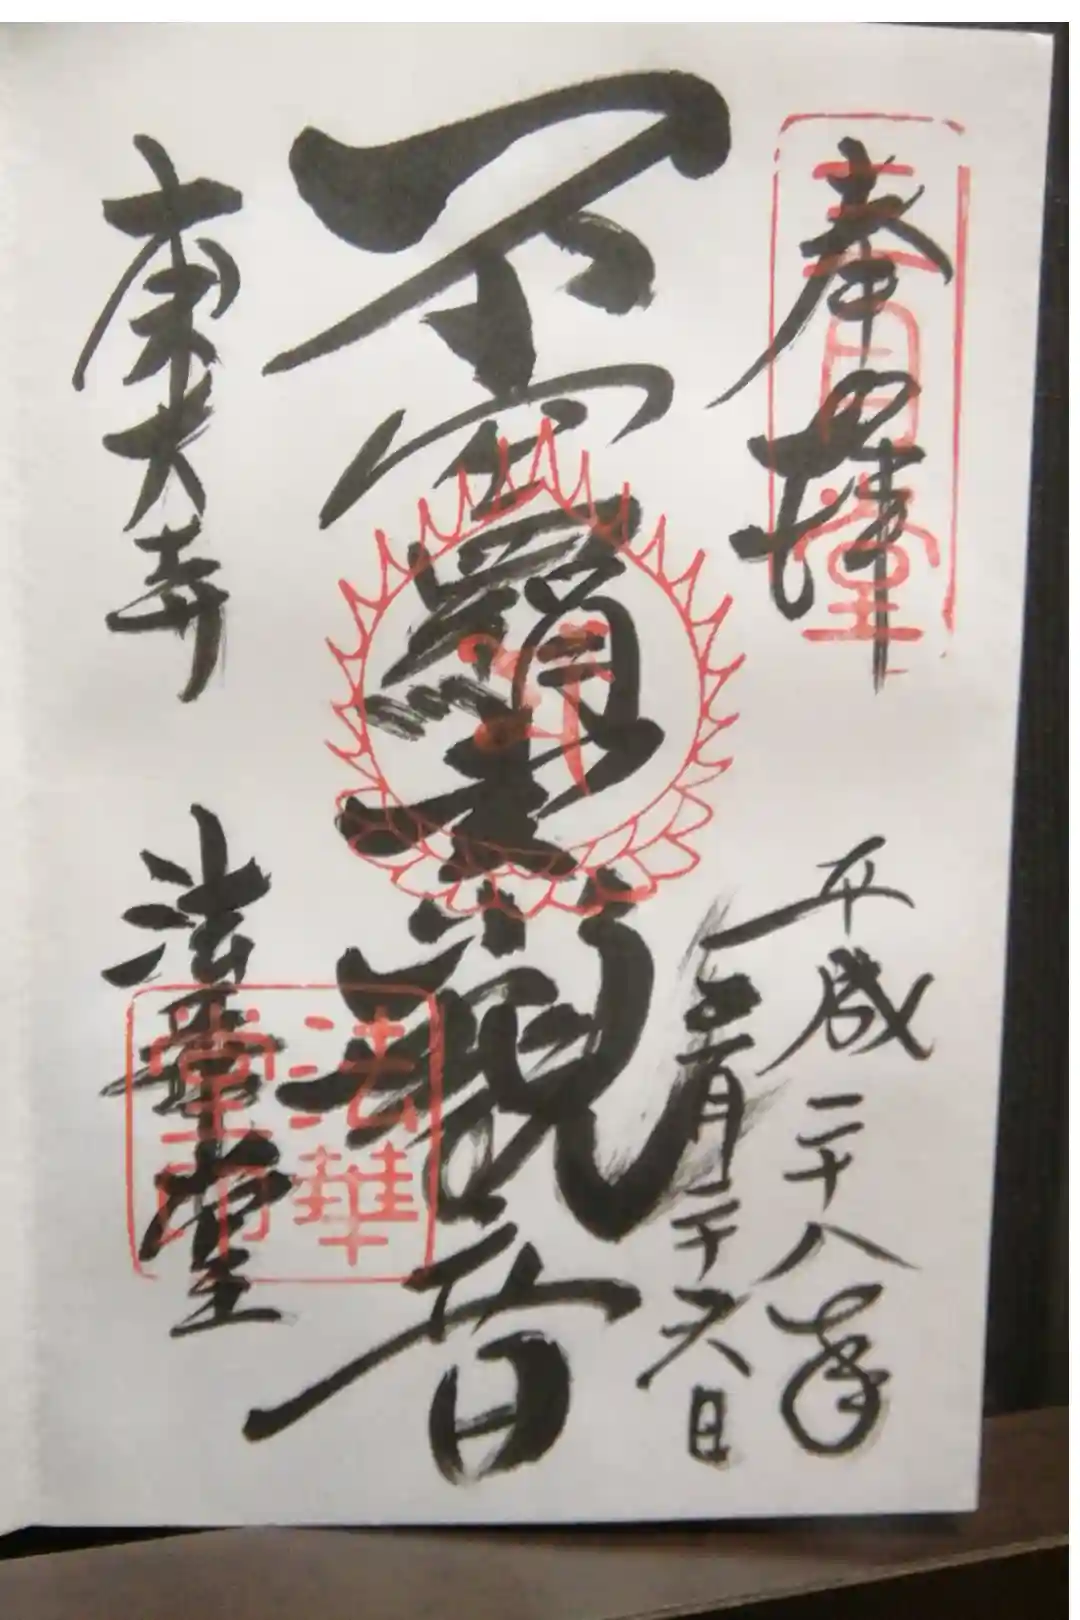 奉拝
三月堂
平成二十八年
三月二十六日
不空羂索観音
東大寺
法華堂
法華堂印